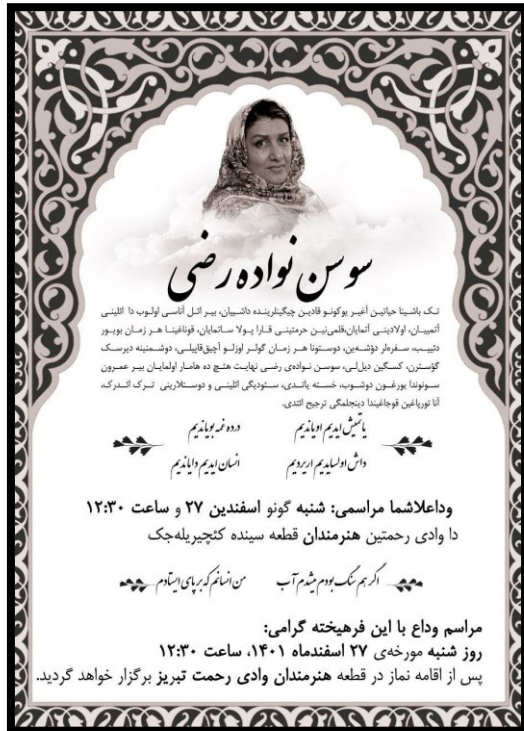 سوسن نواده رضی
تک باشینا حیاتین آغیر یوکونو قادین چیگینلرینده داشییان، بیر ائل آناسی اولوب دا ائلینی
آتمییان، اولادینی آتمایان،قلمی‌نین حرمتینی قارا پولا ساتمایان، قوناغینا هر زمان بویور
دئییب، سفره‌لر دؤشه‌ین، دوستونا هر زمان گولر اوزلو آچیق‌قاپیلی، دوشمنینه دیرسک
گؤسترن، کسگین دیل‌لی، سوسن نواده‌ی رضی نهایت هئچ ده هامار اولمایان بیر عمرون
سونوندا یورغون دوشوب، خسته یاتدی، سئودیگی ائلینی و دوستلارینی ترک ائدرک،
آنا تورپاغین قوجاغیندا دینجلمگی ترجیح ائتدی.
یاتمیش ایدیم اویاندیم درده غمه بویاندیم
داش اولسایدیم اریردیم انسان ایدیم دایاندیم
وداعلاشما مراسمی: شنبه گونو اسفندین ۲۷ و ساعت ۱۲:۳۰
دا وادی رحمتین هنرمندان قطعه سینده کئچیریله‌جک
اگر هم سنگ بودم میشدم آب من انسانم که بر پای ایستادم
مراسم وداع با این فرهیخته گرامی:
روز شنبه مورخه‌ی ۲۷ اسفندماه ۱۴۰۱، ساعت ۱۲:۳۰
پس از اقامه نماز در قطعه هنرمندان وادی رحمت تبریز برگزار خواهد گردید.